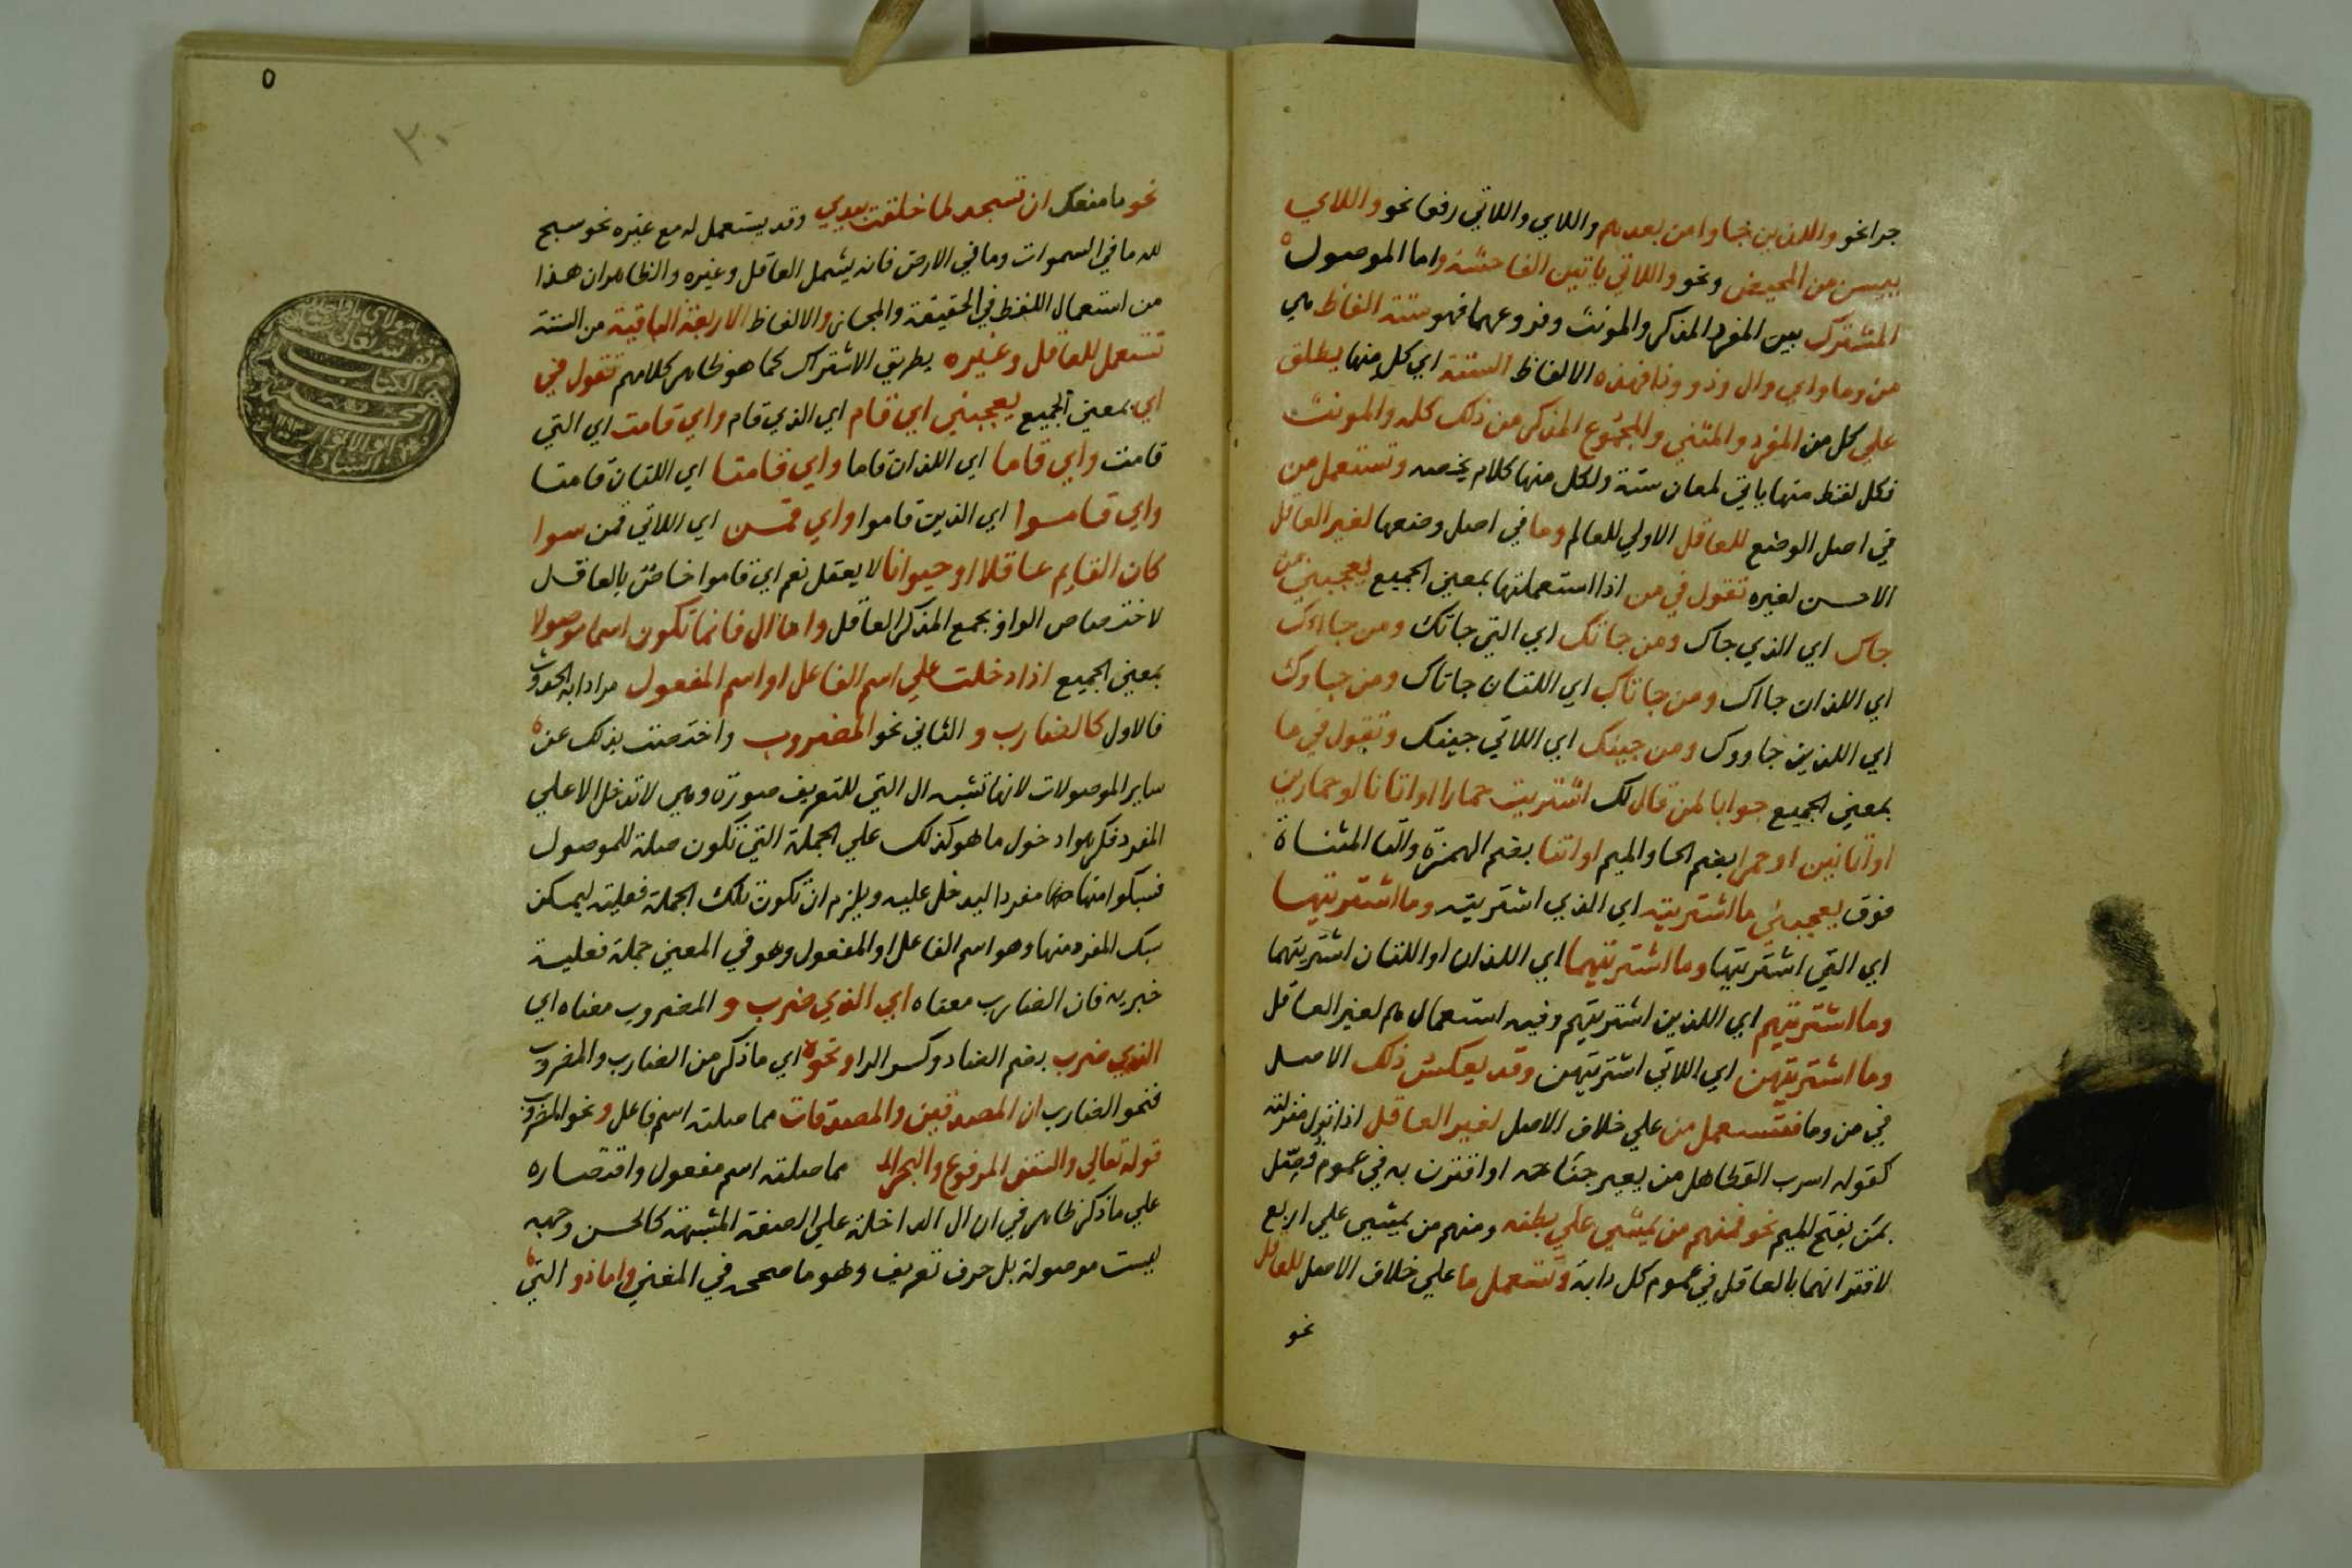 جرا نحو والذين جاوا من بعدهم واللاي واللاتي رفعا نحو واللاي
يبسن من المحيض ونحو واللاتي ياتين الفاحشة واما الموصول
المشترك بين المفرد المذكر والمونث وفروعهما فهو ستة الفاظ هي
من وما واي وال وذو وذا فهذه الالفاظ الستة اي كل منها يطلق
علي كل من المفرد والمثني والمجموع المذكر من ذلك كله والمونث
فكل لفظ منها ياتي لمعان ستة ولكل منها كلام يخصه وتستعمل من
في اصل الوضع للعاقل الاولي للعالم وما في اصل وضعها لغير العاقل
الاحسن لغيره تقول في من اذا استعملتها بمعني الجميع يعجبني من
جاك اي الذي جاك ومن جاتك اي التي جاتك ومن جااك
اي اللذان جااك ومن جاتاك اي اللتان جاتاك ومن جاوك
اي اللذين جاووك ومن جينك اي اللاتي جينك وتقول في ما
بمعني الجميع جوابا لمن قال لك اشتريت حمارا او اتانا او حمارين
او اتانين او حمرا بضم الحا والميم او اتنا بضم الهمزة والتا المثناة
فوق يعجبني ما اشتريته اي الذي اشتريته وما اشتريتها
اي التي اشتريتها وما اشتريتهما اي اللذان او اللتان اشتريتهما
وما اشتريتهم اي اللذين اشتريتهم وفيه استعمال هم لغير العاقل
وما اشتريتهن اي اللاتي اشتريتهن وقد يعكس ذلك الاصل
في من وما فتستعمل من علي خلاف الاصل لغير العاقل اذا نزل منزلته
كقوله اسرب القطا هل من يعير جناحه او اقترن به في عموم فصل
بمن بفتح الميم نحو فمنهم من يمشي علي بطنه ومنهم من يمشي علي اربع
لاقترانهما بالعاقل في عموم كل دابة وتستعمل ما علي خلاف الاصل للعاقل
نحو
٥
٣٠
نحو ما منعك ان تسجد لما خلقت بيدي وقد يستعمل له مع غيره نحو سبح
لله ما في السموات وما في الارض فانه يشمل العاقل وغيره والظاهر ان هذا
من استعمال اللفظ في الحقيقة والمجاز والالفاظ الاربعة الباقية من الستة
تستعمل للعاقل وغيره بطريق الاشتراك كما هو ظاهر كلامهم تقول في
اي بمعني الجميع يعجبني اي قام اي الذي قام واي قامت اي التي
قامت واي قاما اي اللذان قاما واي قامتا اي اللتان قامتا
واي قاموا اي الذين قاموا واي قمن اي اللاتي قمن سوا
كان القايم عاقلا او حيوانا لا يعقل نعم اي قاموا خاص بالعاقل
لاختصاص الواو بجمع المذكر العاقل واما ال فانما تكون اسما موصولا
بمعني الجميع اذا دخلت علي اسم الفاعل او اسم المفعول مرادا به الحدوث
فالاول كالضارب و الثاني نحو المضروب واختصت بذلك عن
ساير الموصولات لانها تشبه ال التي للتعريف صورة وهي لا تدخل الا علي
المفرد فكرهوا دخول ما هو كذلك علي الجملة التي تكون صلة للموصول
فسبكوا منها مفردا ليدخل عليه ويلزم ان تكون تلك الجملة فعلية ليمكن
سبك المفرد منها وهو اسم الفاعل او المفعول وهو في المعني جملة فعلية
خبرية فان الضارب معناه اي الذي ضرب و المضروب معناه اي
الذي ضرب بضم الضاد وكسر الرا ونحوه اي ما ذكر من الضارب والمضروب
فنحو الضارب ان المصدقين والمصدقات مما صلته اسم فاعل ونحو المضروب
قوله تعالي والسقف المرفوع والبحر الم مما صلته اسم مفعول واقتصاره
علي ما ذكر ظاهر في ان ال الداخلة علي الصفة المشبهة كالحسن وجهه
ليست موصولة بل حرف تعريف وهو ما صححه في المغني واما ذو التي